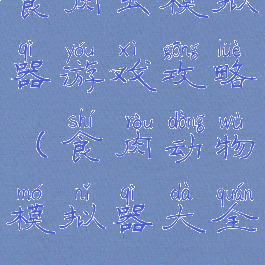 食肉去模拟
qì yóu xì gōng lüè
器游戏攻略
shí ròu dòng wù
(食肉动物
mó nǐ qì dà quán
模拟器大全